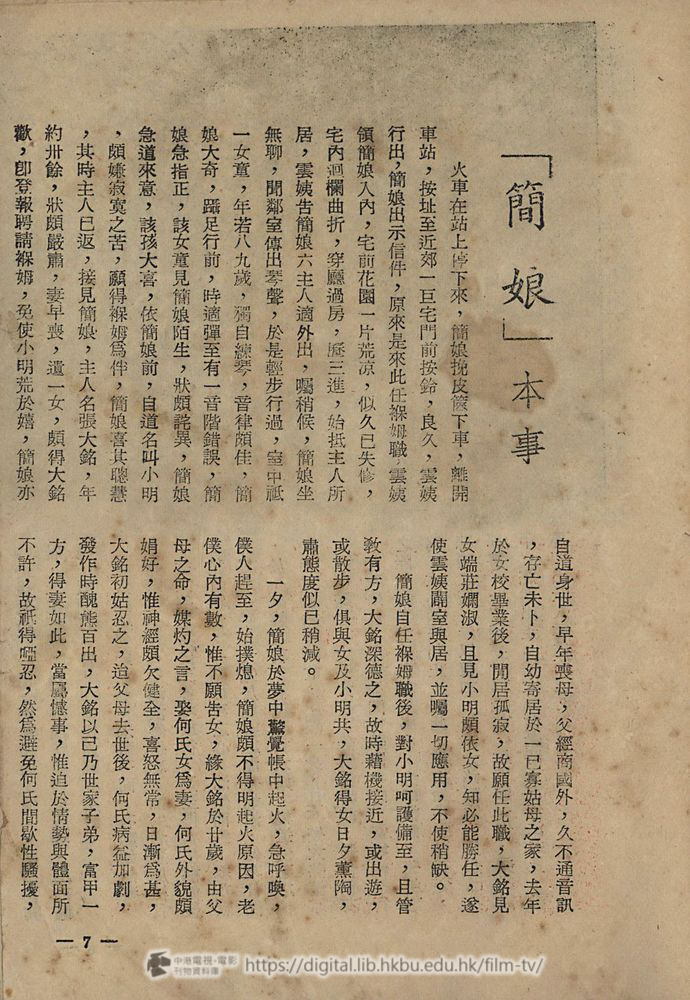 「簡娘」本事
火車在站上停下來，簡娘挽皮篋下車，離開
車站，按址至近郊一巨宅門前按鈴，良久，雲姨
行出，簡娘出示信件，原來是來此任褓姆職，雲姨
領簡娘入內，宅前花園一片荒凉，似久已失修，
宅內迴欄曲折，穿廳過房，歷三進，始抵主人所
居，雲姨告簡娘六主人適外出，囑稍候，簡娘坐
無聊，聞鄰室傳出琴聲，於是輕步行過，室中祗
一女童，年若八九歲，獨自練琴，音律頗佳，簡
娘大奇，躡足行前，時適彈至有一音階錯誤，簡
娘急指正，該女童見簡娘陌生，狀頗詫異，簡娘
急道來意，該孩大喜，依簡娘前，自道名叫小明
，頗嫌寂寞之苦，願得褓姆爲伴，簡娘喜其聰慧
，其時主人已返，接見簡娘，主人名張大銘，年
約卅餘，狀頗嚴肅，妻早喪，遺一女，頗得大銘
歡，卽登報聘請褓姆，免使小明荒於嬉，簡娘亦
自道身世，早年喪母，父經商國外，久不通音訊
，存亡未卜，自幼寄居於一已寡姑母之家，去年
於女校畢業後，閒居孤寂，故願任此職，大銘見
女端莊嫻淑，且見小明頗依女，知必能勝任，遂
使雲姨闢室與居，並囑一切應用，不使稍缺。
簡娘自任褓姆職後，對小明呵護備至，且管
敎有方，大銘深德之，故時藉機接近，或出遊，
或散步，俱與女及小明共，大銘得女日夕薰陶，
肅態度似已稍減。
一夕，簡娘於夢中驚覺帳中起火，急呼喚，
僕人趕至，始撲熄，簡娘頗不得明起火原因，老
僕心內有數，惟不願告女，緣大銘於廿歲，由父
母之命，媒灼之言，娶何氏女爲妻，何氏外貌頗
娟好，惟神經頗欠健全，喜怒無常，日漸爲甚，
大銘初姑忍之，迨父母去世後，何氏病益加劇，
發作時醜態百出，大銘以已乃世家子弟，富甲一
方，得妻如此，當屬憾事，惟迫於情勢與體面所
不許，故祇得啞忍，然爲避免何氏間歇性騷擾，
— 7 —
中港電視‧電影
刊物資料庫
https://digital.lib.hkbu.edu.hk/film-tv/